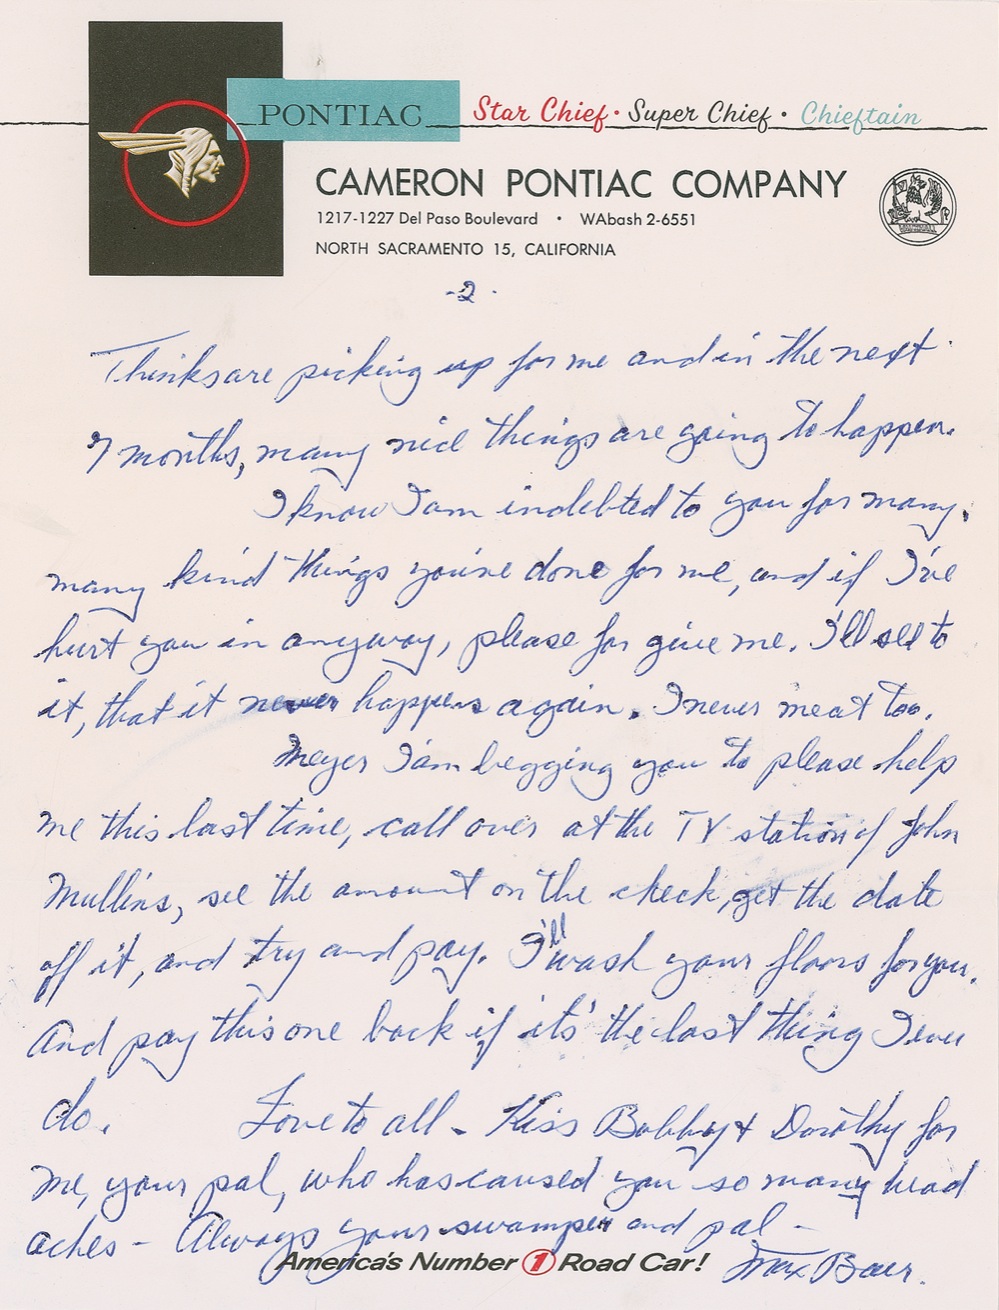 PONTIAC Star Chief · Super Chief · Chieftain
CAMERON PONTIAC COMPANY
1217-1227 Del Paso Boulevard • WAbash 2-6551
NORTH SACRAMENTO 15, CALIFORNIA
-2-
Thinks are picking up for me and in the next
7 months, many nice things are going to happen.
I know I am indebted to you for many,
many kind things you've done for me, and if I've
hurt you in anyway, please for give me. I'll see to
it, that it never happens again. I never meat too.
Meyer I'am begging you to please help
me this last time, call over at the TV station of John
Mullins, see the amount on the check, get the date
off it, and try and pay. I'll wash your floors for you.
And pay this one back if its' the last thing I ever
do. Love to all - Kiss Bobby & Dorothy for
me, your pal, who has caused you so many head
aches - Always your swamper and pal -
Max Baer.
America's Number 1 Road Car!